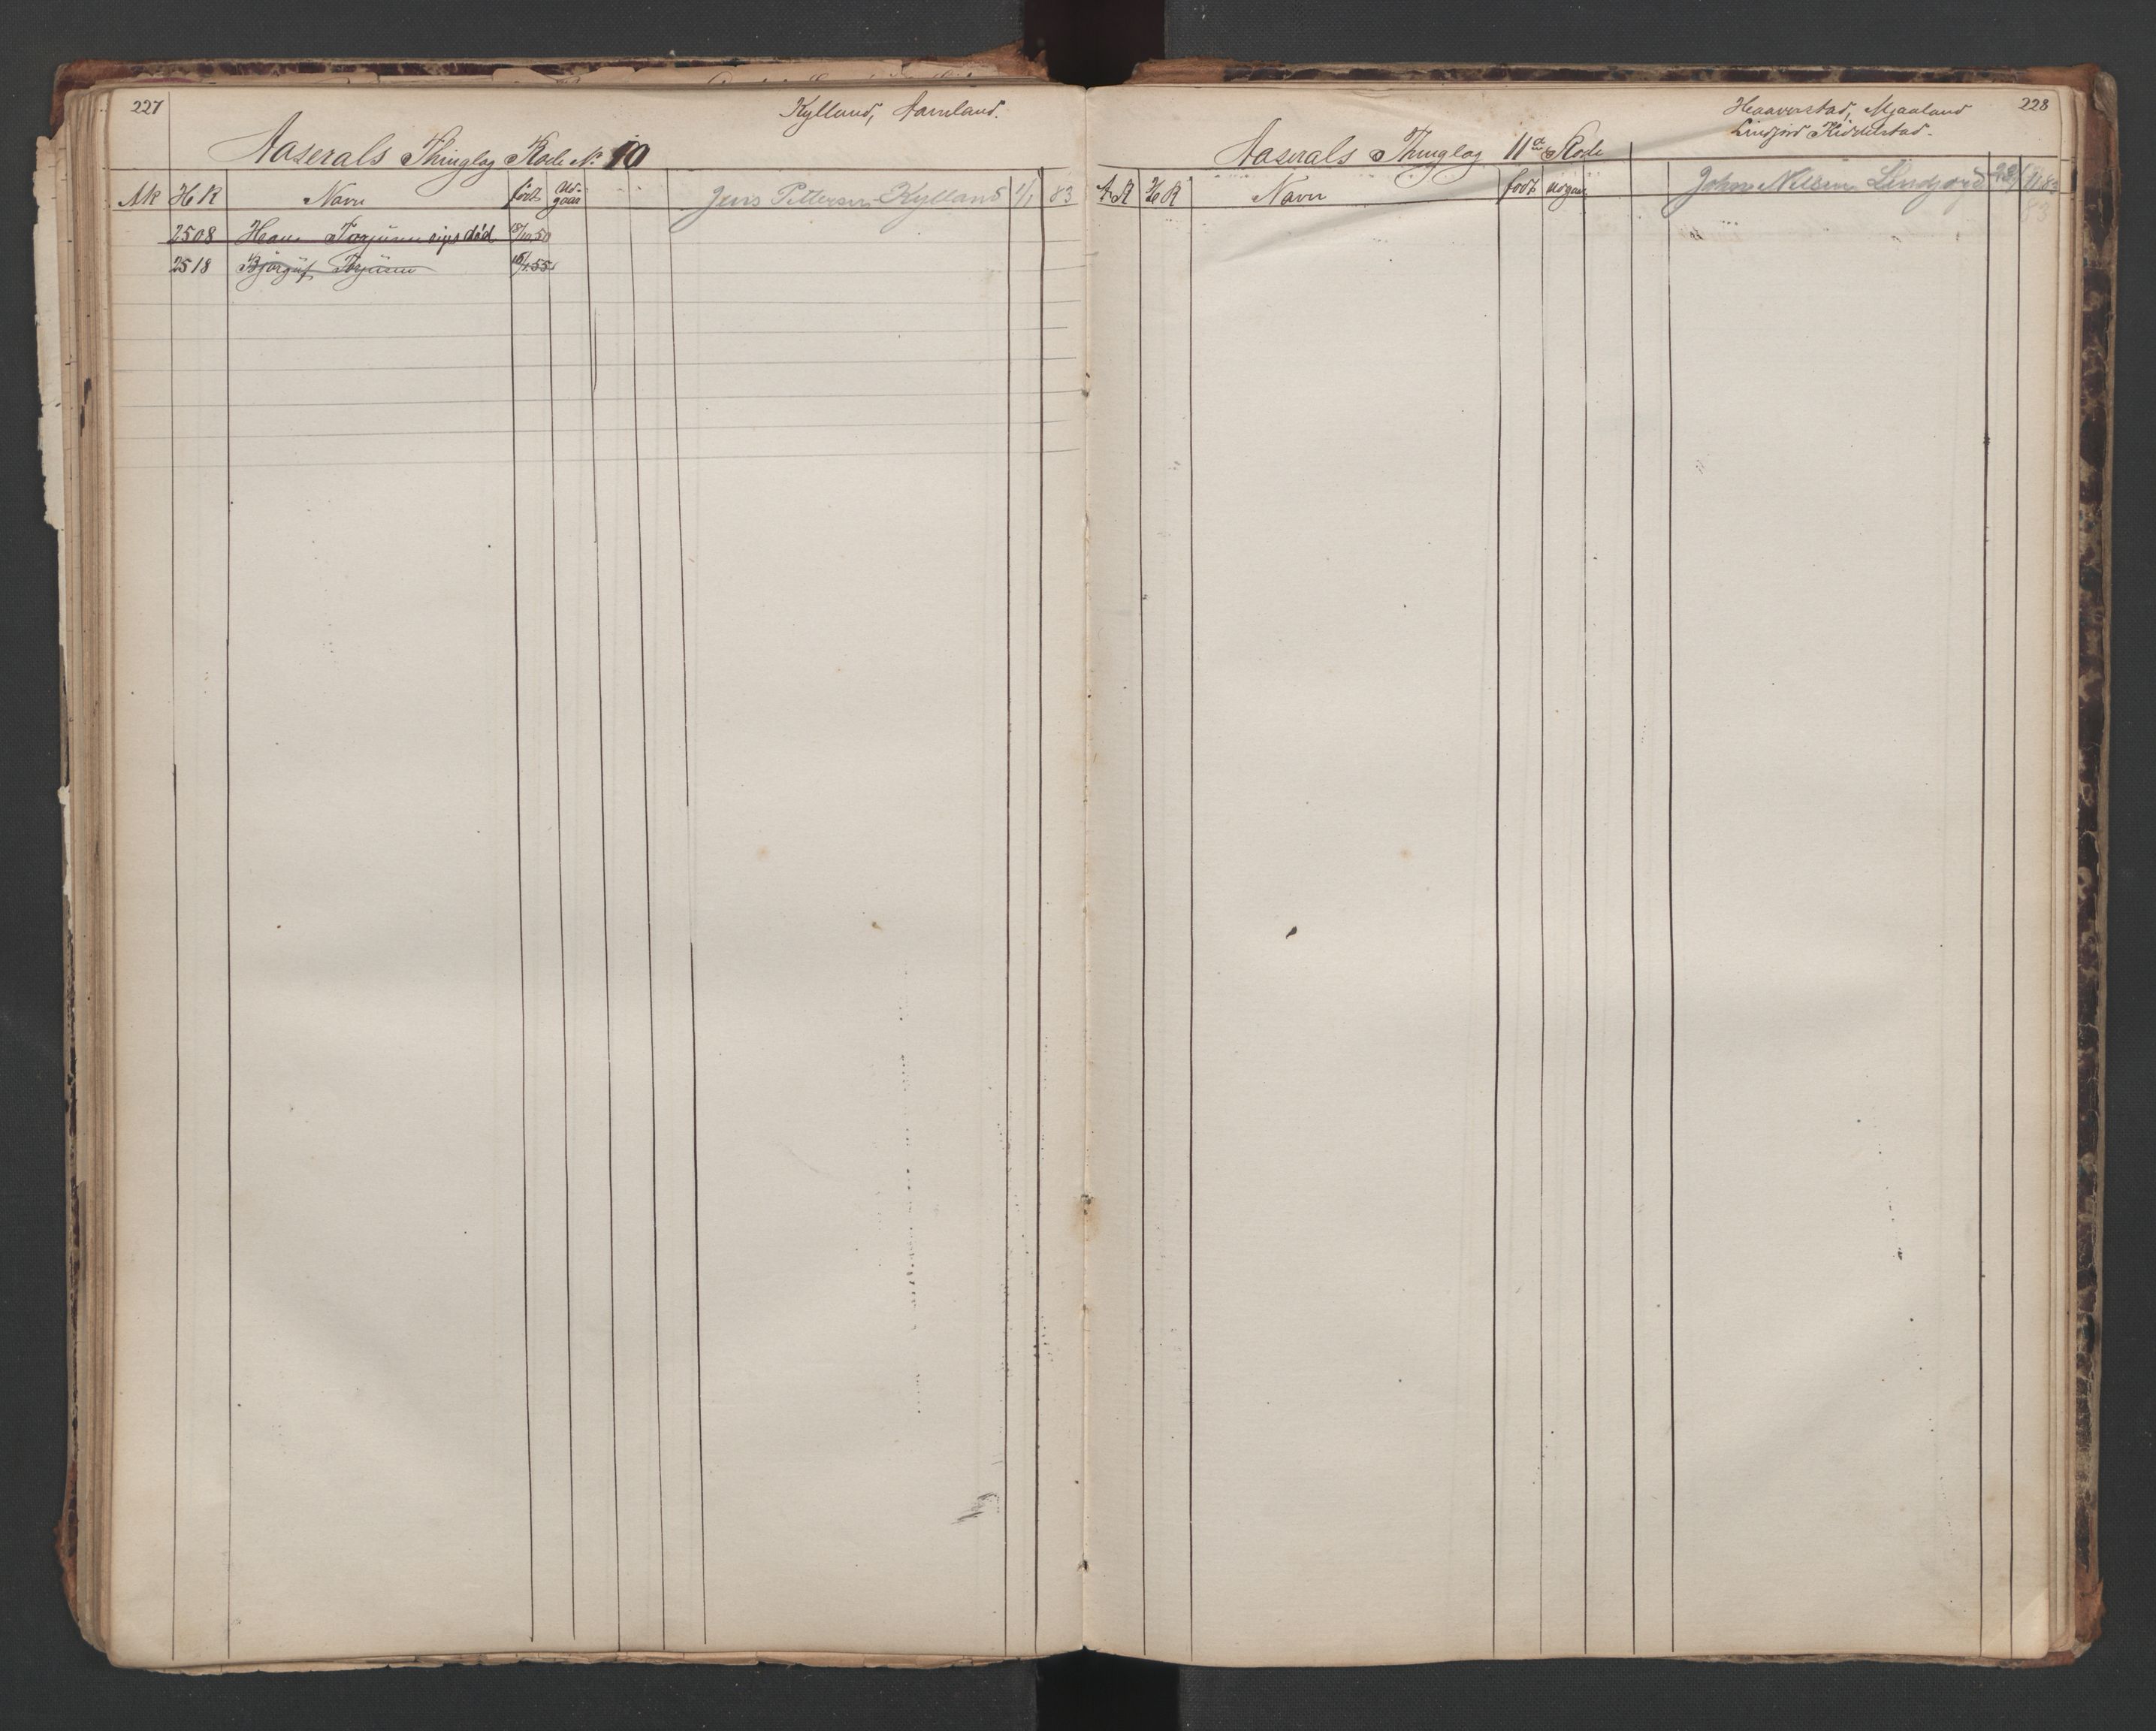 227
Kylland, Aamland.
Aaserals Thinglag Rode No 10
AR HR Navn født Ud-gaar Jens Pettersen Kylland 1/1 83
2508 Hans Torjusen siges død 18/10 50
2518 Bjørgüf Torjüsen 55
228
Haaverstad, Mjaaland
Lindjord Kiddelstad.
Aaserals Thinglag 11te Rode
AR HR Navn født Udgaar John Nilsen Lindjord 11 83
83